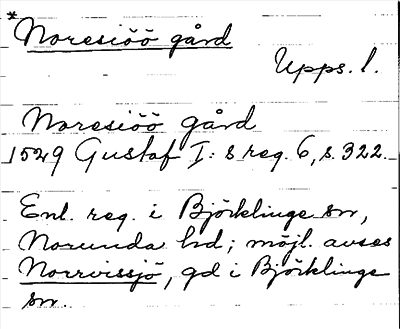 * Noresiöö gård
Upps. l.
Noresiöö gård
1529 Gustaf I:s reg. 6, s. 322.
Enl. reg. i Björklinge sn,
Norunda hd; möjl. avses
Norrvissjö, gd i Björklinge
sn.